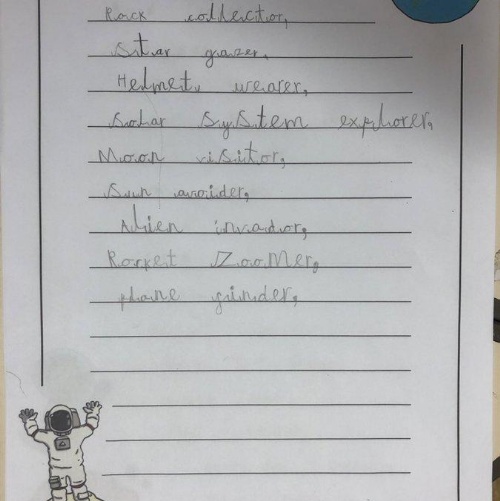 Rock collector,
Star gazer,
Helmet wearer,
Solar System explorer,
Moon visitor,
Sun avoider,
Alien invador,
Rocket ZooMer,